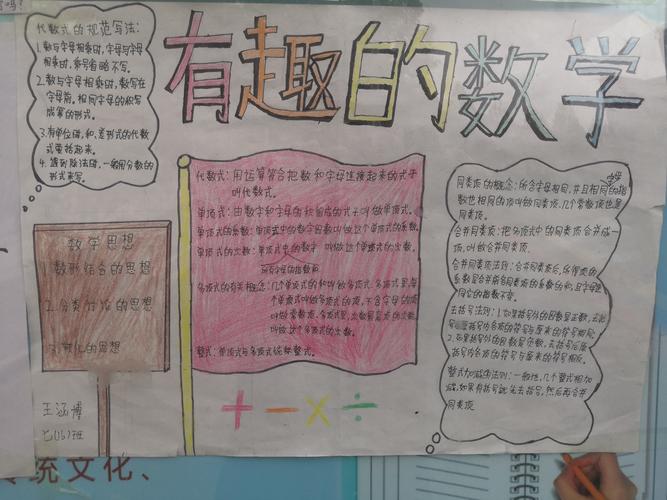 有趣的数学
代数式的规范写法:
1.数与字母相乘时,字母与字母
相乘时,乘号省略不写。
2.数与字母相乘时,数写在
字母前。相同字母的积写
成幂的形式。
3.有单位时,和、差形式的代数
式要括起来。
4.遇到除法时,一般用分数的
形式来写。
数学思想
1.数形结合的思想
2.分类讨论的思想
3.转化的思想
王涵博
七(16)班
代数式:用运算符合把数和字母连接起来的式子
叫代数式。
单项式:由数字和字母的积组成的式子叫做单项式。
单项式的系数:单项式中的数字因数叫做这个单项式的系数。
单项式的次数:单项式中的数字 叫做这个单项式的次数。
所有字母的指数和
多项式的有关概念:几个单项式的和叫做多项式,多项式里,每
个单项式叫做多项式的项,不含字母的项
叫做常数项。多项式里,次数最高项的次数,
叫做这个多项式的次数。
整式:单项式与多项式统称整式。
+ − × ÷
同类项的概念:所含字母相同,并且相同的指
字母
数也相同的项叫做同类项,几个常数项也是
同类项。
合并同类项:把多项式中的同类项合并成一
项,叫做合并同类项。
合并同类项法则:合并同类项后,所得项的
系数是合并前各同类项的系数的和,且字母连
同它的指数不变。
去括号法则:1.如果括号外的因数是正数,去括
号后原括号内各项的符号与原来的符号相同;
2.如果括号外的因数是负数,去括号后原
括号内各项的符号与原来的符号相反。
整式加减法则:一般地,几个整式相加
减,如果有括号就先去括号,然后再合并
同类项
传统文化、